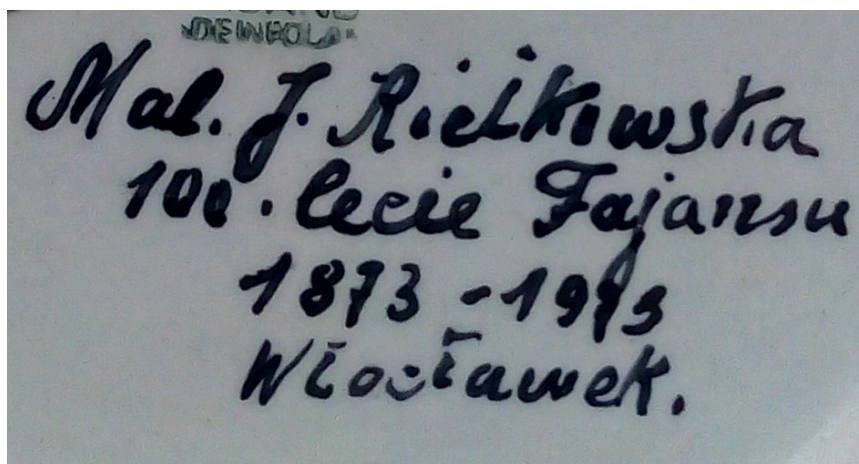 Mal. J. Rielkowska
100. lecie Fajansu
1873-1973
Włocławek.